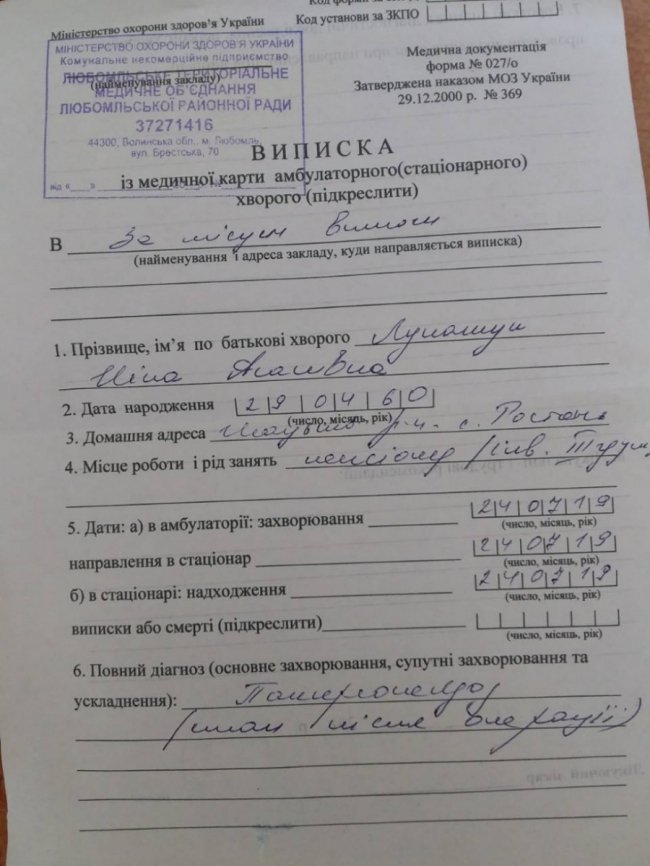 Код форми за
Міністерство охорони здоров'я України
Код установи за ЗКПО
МІНІСТЕРСТВО ОХОРОНИ ЗДОРОВ'Я УКРАЇНИ
Комунальне некомерційне підприємство
(найменування закладу)
ЛЮБОМЛЬСЬКЕ ТЕРИТОРІАЛЬНЕ
МЕДИЧНЕ ОБ'ЄДНАННЯ
ЛЮБОМЛЬСЬКОЇ РАЙОННОЇ РАДИ
37271416
44300, Волинська обл., м. Любомль,
вул. Брестська, 70
від «___»
Медична документація
форма № 027/о
Затверджена наказом МОЗ України
29.12.2000 р. № 369
ВИПИСКА
із медичної карти амбулаторного(стаціонарного)
хворого (підкреслити)
В За місцем вимоги
(найменування і адреса закладу, куди направляється виписка)
1. Прізвище, ім'я по батькові хворого
Ніна
2. Дата народження 290460
(число, місяць, рік)
3. Домашня адреса Шацький р-н. с. Ростань
4. Місце роботи і рід занять інв. ІІ групи
5. Дати: а) в амбулаторії: захворювання 240719
(число, місяць, рік)
направлення в стаціонар 240719
(число, місяць, рік)
б) в стаціонарі: надходження 240719
(число, місяць, рік)
виписки або смерті (підкреслити)
(число, місяць, рік)
6. Повний діагноз (основне захворювання, супутні захворювання та
ускладнення):
(стан після операції)